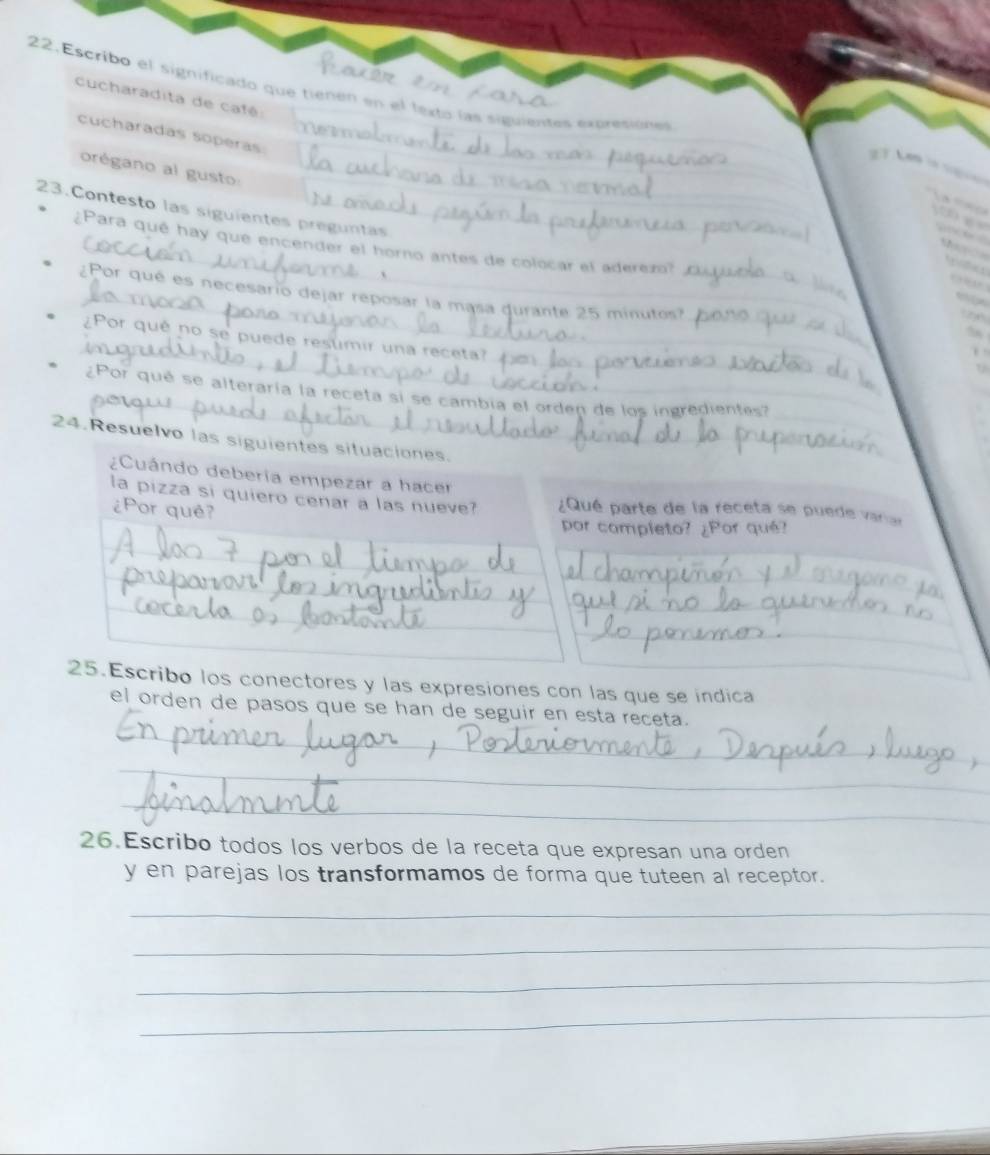 hacer en casa
22.Escribo el significado que tienen en el texto las siguientes expresiones
cucharadita de café: normalmente de las mas pequeñas
cucharadas soperas: la cuchara de mesa normal
orégano al gusto: se añade según la preferencia personal
23.Contesto las siguientes preguntas
• ¿Para qué hay que encender el horno antes de colocar el aderezo? ayuda a una
cocción uniforme.
• ¿Por qué es necesario dejar reposar la masa durante 25 minutos? para que se
la masa para mejorar la textura.
• ¿Por qué no se puede resumir una receta? por las porciones exactas de los
ingredientes, el tiempo de cocción.
• ¿Por qué se alteraría la receta si se cambia el orden de los ingredientes?
porque puede afectar el resultado final de la preparación
24.Resuelvo las siguientes situaciones.
¿Cuándo debería empezar a hacer
la pizza si quiero cenar a las nueve?
¿Por qué?
A las 7 por el tiempo de
preparar los ingredientes y
cocerla es bastante
¿Qué parte de la receta se puede variar
por completo? ¿Por qué?
el champiñón y el oregano ya
que si no lo queremos no
lo ponemos.
25.Escribo los conectores y las expresiones con las que se indica
el orden de pasos que se han de seguir en esta receta.
En primer lugar, Posteriormente, Después, luego,
finalmente
26.Escribo todos los verbos de la receta que expresan una orden
y en parejas los transformamos de forma que tuteen al receptor.
27 Leo